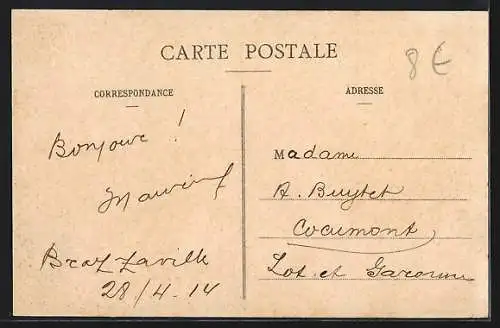 CARTE POSTALE
8€
CORRESPONDANCE
ADRESSE
Bonjour !
Brazzaville
28/4.14
Madame
A. Buytet
Cocumont
Lot et Garonne